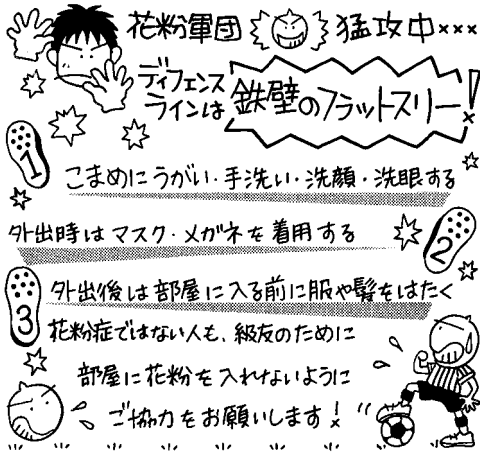 花粉軍団 猛攻中×××
ディフェンス
ラインは 鉄壁のフラットスリー!
1 こまめにうがい・手洗い・洗顔・洗眼する
外出時はマスク・メガネを着用する 2
3 外出後は部屋に入る前に服や髪をはたく
花粉症ではない人も、級友のために
部屋に花粉を入れないように
ご協力をお願いします!